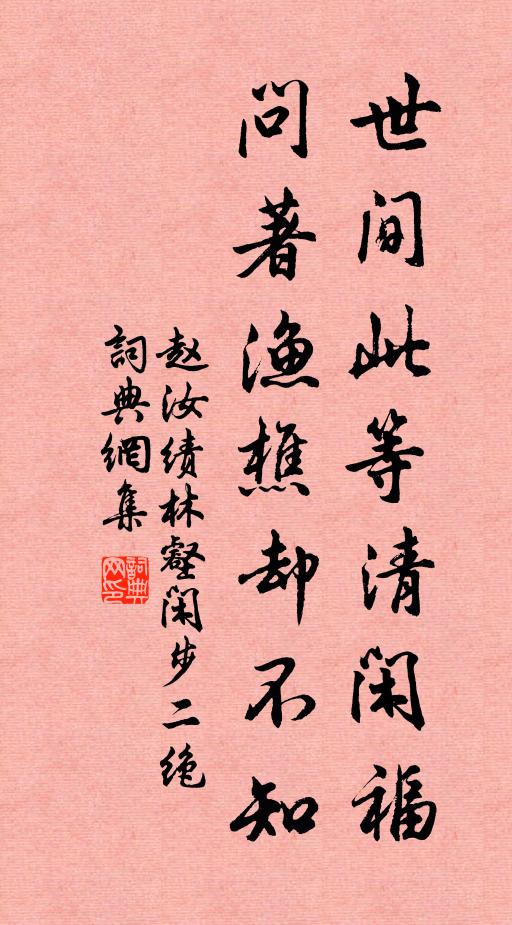 世间此等清闲福
问著渔樵却不知
赵汝绩林壑闲步二绝
詞典網集
詞典网印